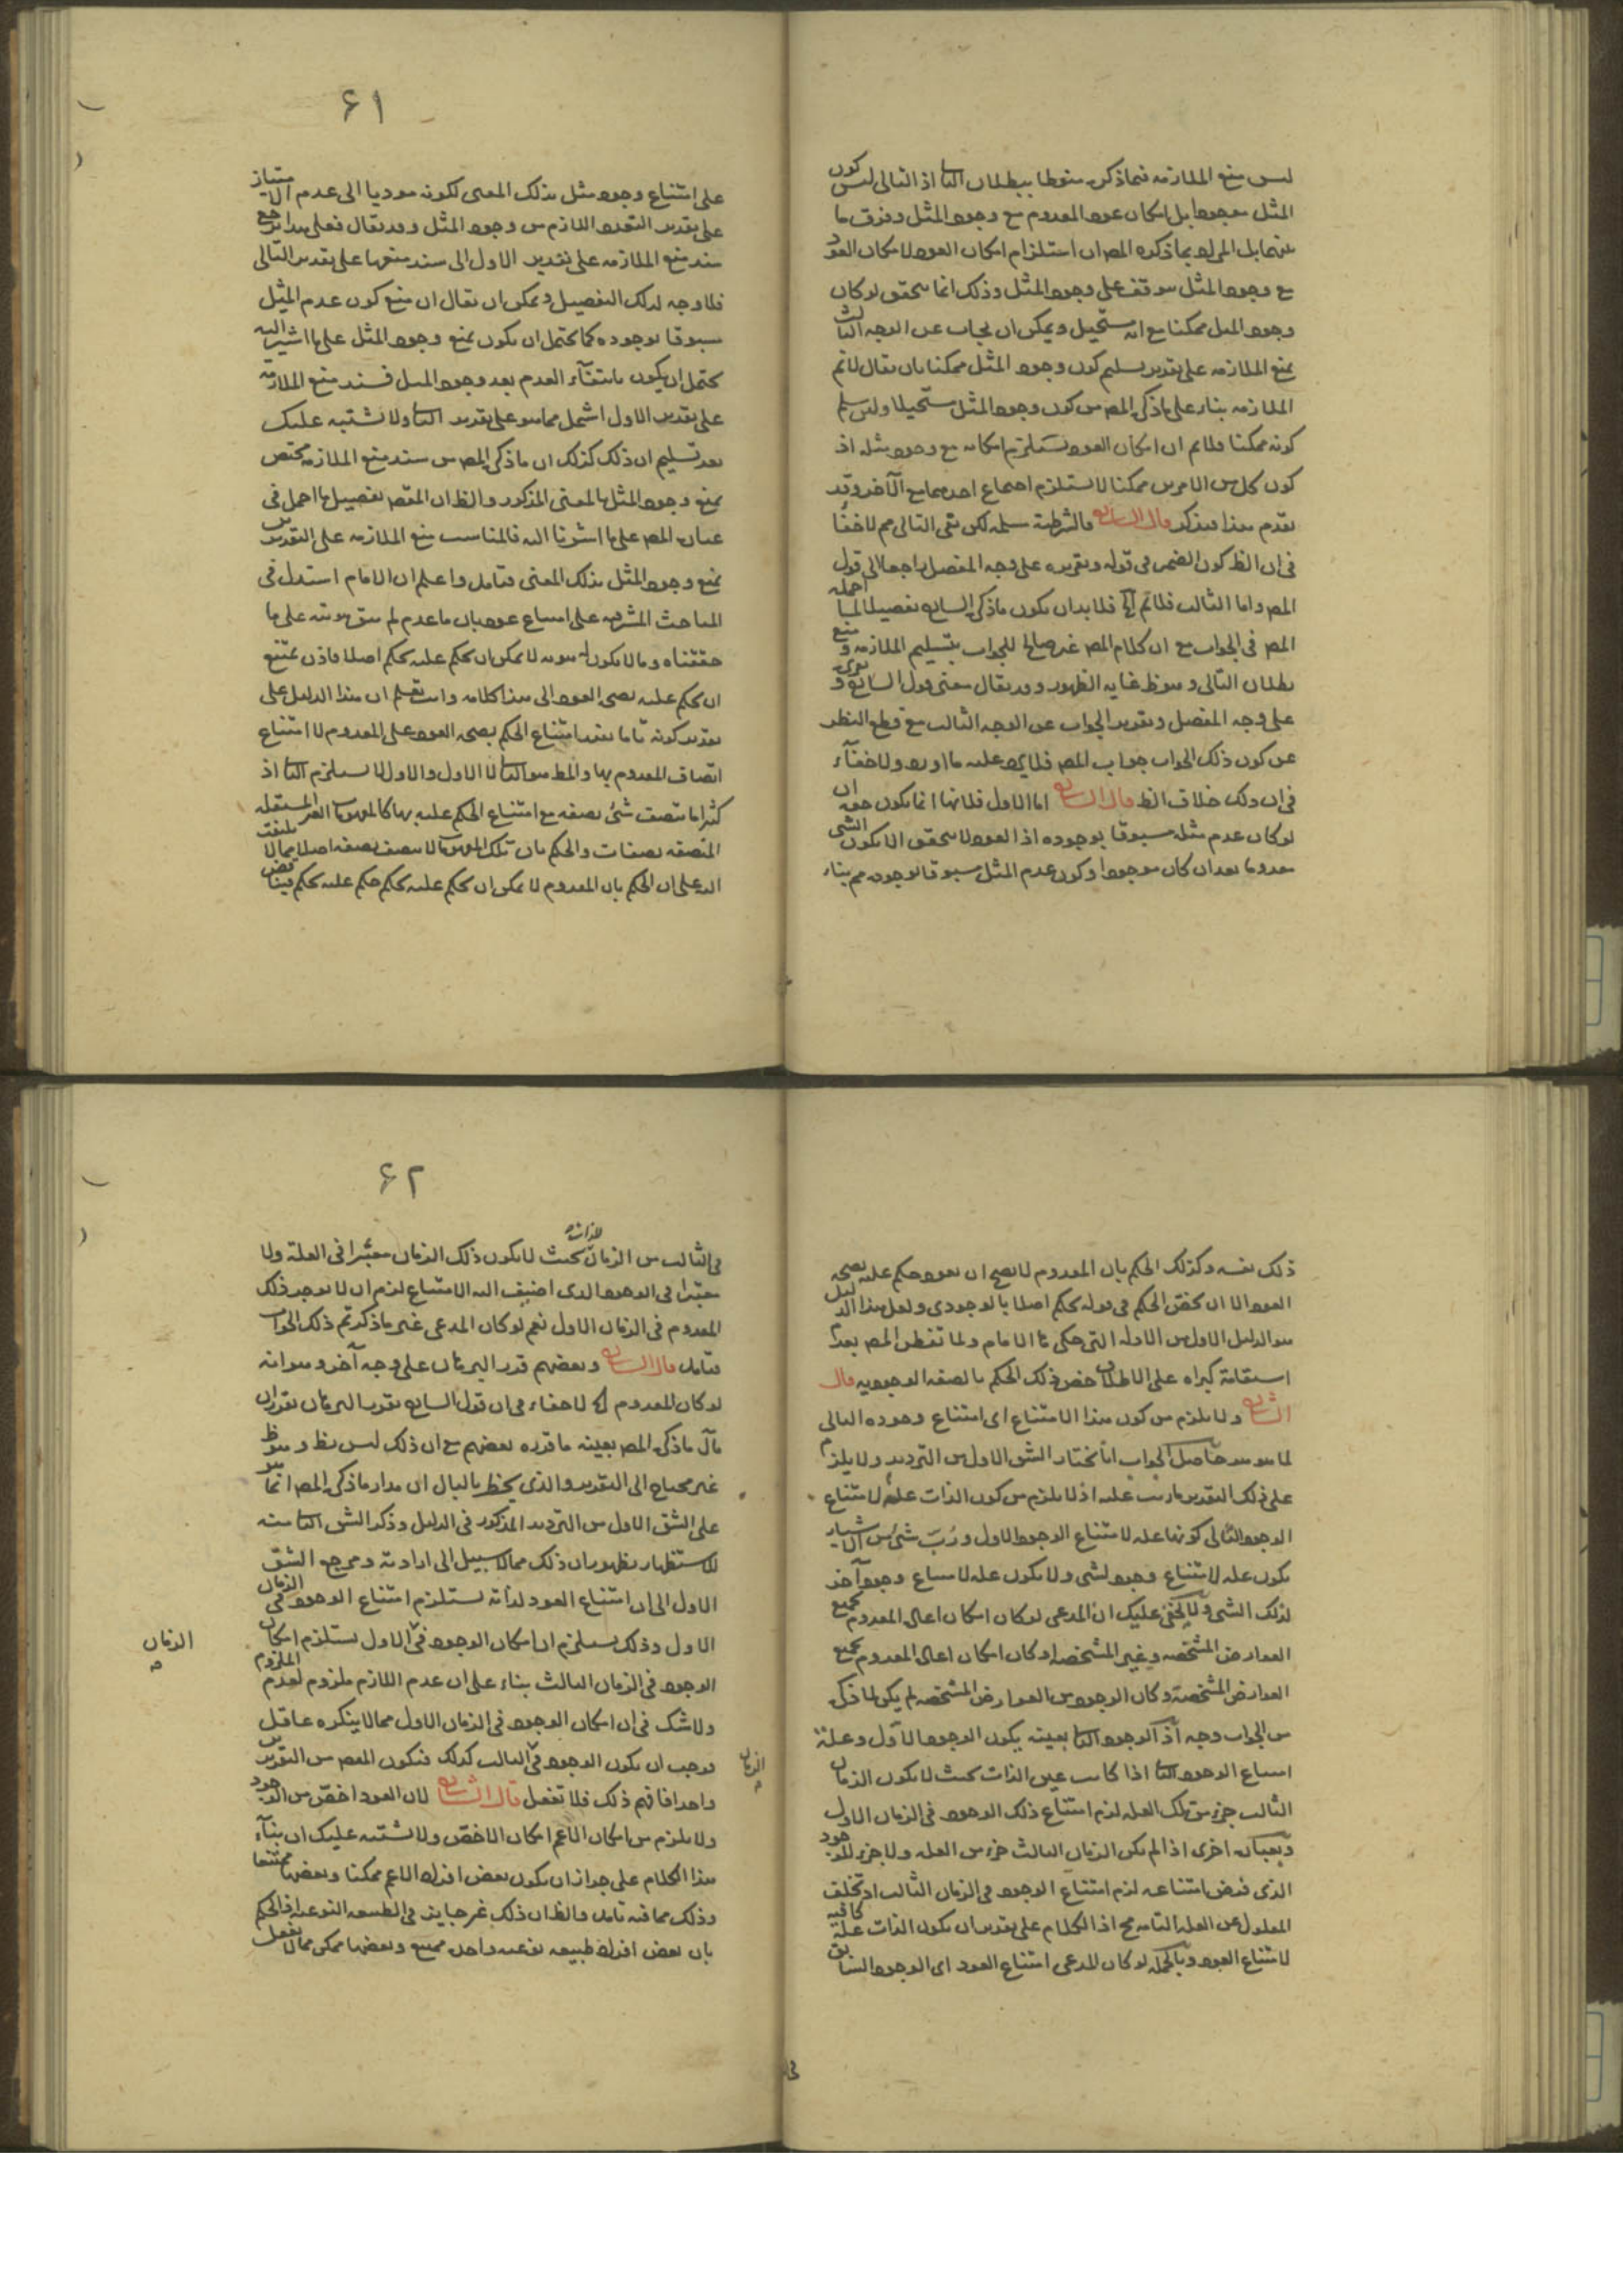 ليس منع الملازمة فيما ذكره منوطا ببطلان الثا اذ التالى ليس كون
المثل موجودا بل امكان عود المعدوم مع وجود المثل وفرق ما
بينهما بل المراد بما ذكره المص ان استلزام امكان العود لامكان العود
مع وجود المثل موقف على وجود المثل وذلك انما يتحقق لو كان
وجود المثل ممكنا مع انه مستحيل ويمكن ان يجاب عن الوجه الثالث
بمنع الملازمة على تقدير تسليم كون وجود المثل ممكنا بان يقال لانم
الملازمة بناء على ما ذكره المص من كون وجود المثل مستحيلا ولئن سلم
كونه ممكنا فلانم ان امكان العود يستلزم امكانه مع وجود مثله اذ
كون كل من الامرين ممكنا لا يستلزم اجتماع احدهما مع الآخر وقد
تقدم هذا فتذكر قال الشارح والشرطية مسلمة لكن نفى التالى مم لا خفاء
فى ان الظ كون الضمير فى قوله وتقريره على وجه المفصل راجعا الى قول
المص واما الثالث فلانم الخ فلابد ان يكون ما ذكره الشارح تفصيلا لما اجمله
المص فى الجواب مع ان كلام المص غير صالح للجواب بتسليم الملازمة و منع
بطلان التالى وهو ظ غاية الظهور وقد يقال معنى قول الشارح و تقريره
على وجه المفصل وتقرير الجواب عن الوجه الثالث مع قطع النظر
عن كون ذلك الجواب جواب المص فلا يرد عليه ما اورد ولا خفاء
فى ان ذلك خلاف الظ قال الشارح اما الاول فلانها انما يكون حقه ان
لو كان عدم مثله مسبوقا بوجوده اذ العود لا يتحقق الا بكون الشى
معدوما بعد ان كان موجودا وكون عدم المثل مسبوقا بوجوده مم بناء
۶۱
على امتناع وجود مثل بذلك المعنى لكونه موديا الى عدم الامتياز
على تقدير التعدد اللازم من وجود المثل وقد يقال فعلى هذا يرجع
سند منع الملازمة على تقدير الاول الى سند منعها على تقدير التالى
فلا وجه لذلك التفصيل ويمكن ان يقال ان منع كون عدم المثل
مسبوقا بوجوده كما يحتمل ان يكون بمنع وجود المثل على ما اشير اليه
يحتمل ان يكون بانتفاء العدم بعد وجود المثل فسند منع الملازمة
على تقدير الاول اشمل مما هو على تقدير الثا ولا يشتبه عليك
بعد تسليم ان ذلك كذلك ان ما ذكره المص من سند منع الملازمة مختص
بمنع وجود المثل بالمعنى المذكور والظ ان المقص تفصيل ما اجمل فى
عبارة المص على ما اشرنا اليه فالمناسب منع الملازمة على التقديرين
بمنع وجود المثل بذلك المعنى فتامل واعلم ان الامام استدل فى
المباحث المشرقية على امتناع عوده بان ما عدم لم يبق هويته على ما
حققناه وما لا يكون له هوية لا يمكن ان يحكم عليه بحكم اصلا فاذن يمتنع
ان يحكم عليه بصحة العود الى هذا كلامه وانت تعلم ان هذا الدليل على
تقدير كونه تاما يفيد امتناع الحكم بصحة العود على المعدوم لا امتناع
اتصاف المعدوم بها والمط هو الثا لا الاول والاول لا يستلزم الثا اذ
كثيرا ما يتصف شئ بصفة مع امتناع الحكم عليه بها كالمفهومات الغير المستقلة
المتصفة بصفات والحكم بان تلك المفهومات لا يتصف بصفة اصلا مما لا يلتفت
اليه على ان الحكم بان المعدوم لا يمكن ان يحكم عليه بحكم حكم عليه بحكم فيناقض
ذلك نفسه وكذلك الحكم بان المعدوم لا يصح ان يعود حكم عليه بصحة
العود الا ان يخص الحكم فى قوله بحكم اصلا بالوجودى ولعل هذا الدليل
هو الدليل الاول من الادلة التى حكى ما الامام ولما تفطن المص بعدم
استقامة كبراه على الاطلاق خص ذلك الحكم بالصفة الوجودية قال
الشارح ولا يلزم من كون هذا الامتناع اى امتناع وجوده التالى
لما هو هو حاصل الجواب انا نختار الشق الاول من الترديد ولا يلزم
على ذلك التقدير ما رتب عليه اذ لا يلزم من كون الذات علة لامتناع
الوجود الثانى كونها علة لامتناع الوجود الاول ورب شئ من الاشياء
يكون علة لامتناع وجود لشى ولا يكون علة لامتناع وجود آخر
لذلك الشى ولا يخفى عليك ان المدعى لو كان امكان اعادة المعدوم بجميع
العوارض المشخصة وغير المشخصة او كان امكان اعادة المعدوم بجميع
العوارض المشخصة وكان الوجود من العوارض المشخصة لم يكن لما ذكره
من الجواب وجه اذ الوجود الثا بعينه يكون الوجود الاول وعلة
امتناع الوجود الثا اذا كانت عين الذات بحيث لا يكون الزمان
الثالث جزء من تلك العلة لزم امتناع ذلك الوجود فى الزمان الاول
وبعبارة اخرى اذا لم يكن الزمان الثالث جزء من العلة ولا جزء للوجود
الذى فرض امتناعه لزم امتناع الوجود فى الزمان الثالث او تخلف
المعلول عن العلة التامة مح اذ الكلام على تقدير ان يكون الذات علة كافية
لامتناع العود وبالجملة لو كان المدعى امتناع العود اى الوجود السابق
فى
۶۲
فى الثالث من الزمان لذاته بحيث لا يكون ذلك الزمان معتبرا فى العلة ولا
معتبرا فى الوجود الذى اضيف اليه الامتناع لزم ان لا يوجد ذلك
المعدوم فى الزمان الاول نعم لو كان المدعى غير ما ذكر تم ذلك الجواب
فتامل قال الشارح وبعضهم قرر البرهان على وجه آخر وهو انه
لو كان المعدوم الخ لا خفاء فى ان قول الشارح تقريب البرهان بقوله ان
مآل ما ذكره المص بعينه ما قرره بعضهم مع ان ذلك ليس بظ وهو ظ
غير محتاج الى التقرير والذى يخطر بالبال ان مدار ما ذكره المص انما هو
على الشق الاول من الترديد المذكور فى الدليل وذكر الشق الثا منه
للاستظهار بظهور ان ذلك مما لا سبيل الى ارادته ومرجع الشق
الاول الى ان امتناع العود لذاته يستلزم امتناع الوجود فى الزمان
الاول وذلك يستلزم ان امكان الوجود فى الاول يستلزم امكان
الزمان
الوجود فى الزمان الثالث بناء على ان عدم اللازم ملزوم لعدم الملزوم
ولا شك فى ان امكان الوجود فى الزمان الاول مما لا ينكره عاقل
فوجب ان يكون الوجود فى الثالث كذلك فيكون المقص من التقديرين
الزمان
واحدا فافهم ذلك فلا تغفل قال الشارح لان العود اخص من الوجود
ولا يلزم من امكان الاعم امكان الاخص ولا يشتبه عليك ان بناء
هذا الكلام على جواز ان يكون بعض افراد الاعم ممكنا وبعضها ممتنعا
وذلك مما فيه تامل والظ ان ذلك غير جايز فى الطبيعة النوعية اذ الحكم
بان بعض افراد طبيعة نوعية واحدة ممتنع وبعضها ممكن مما لا يفعل